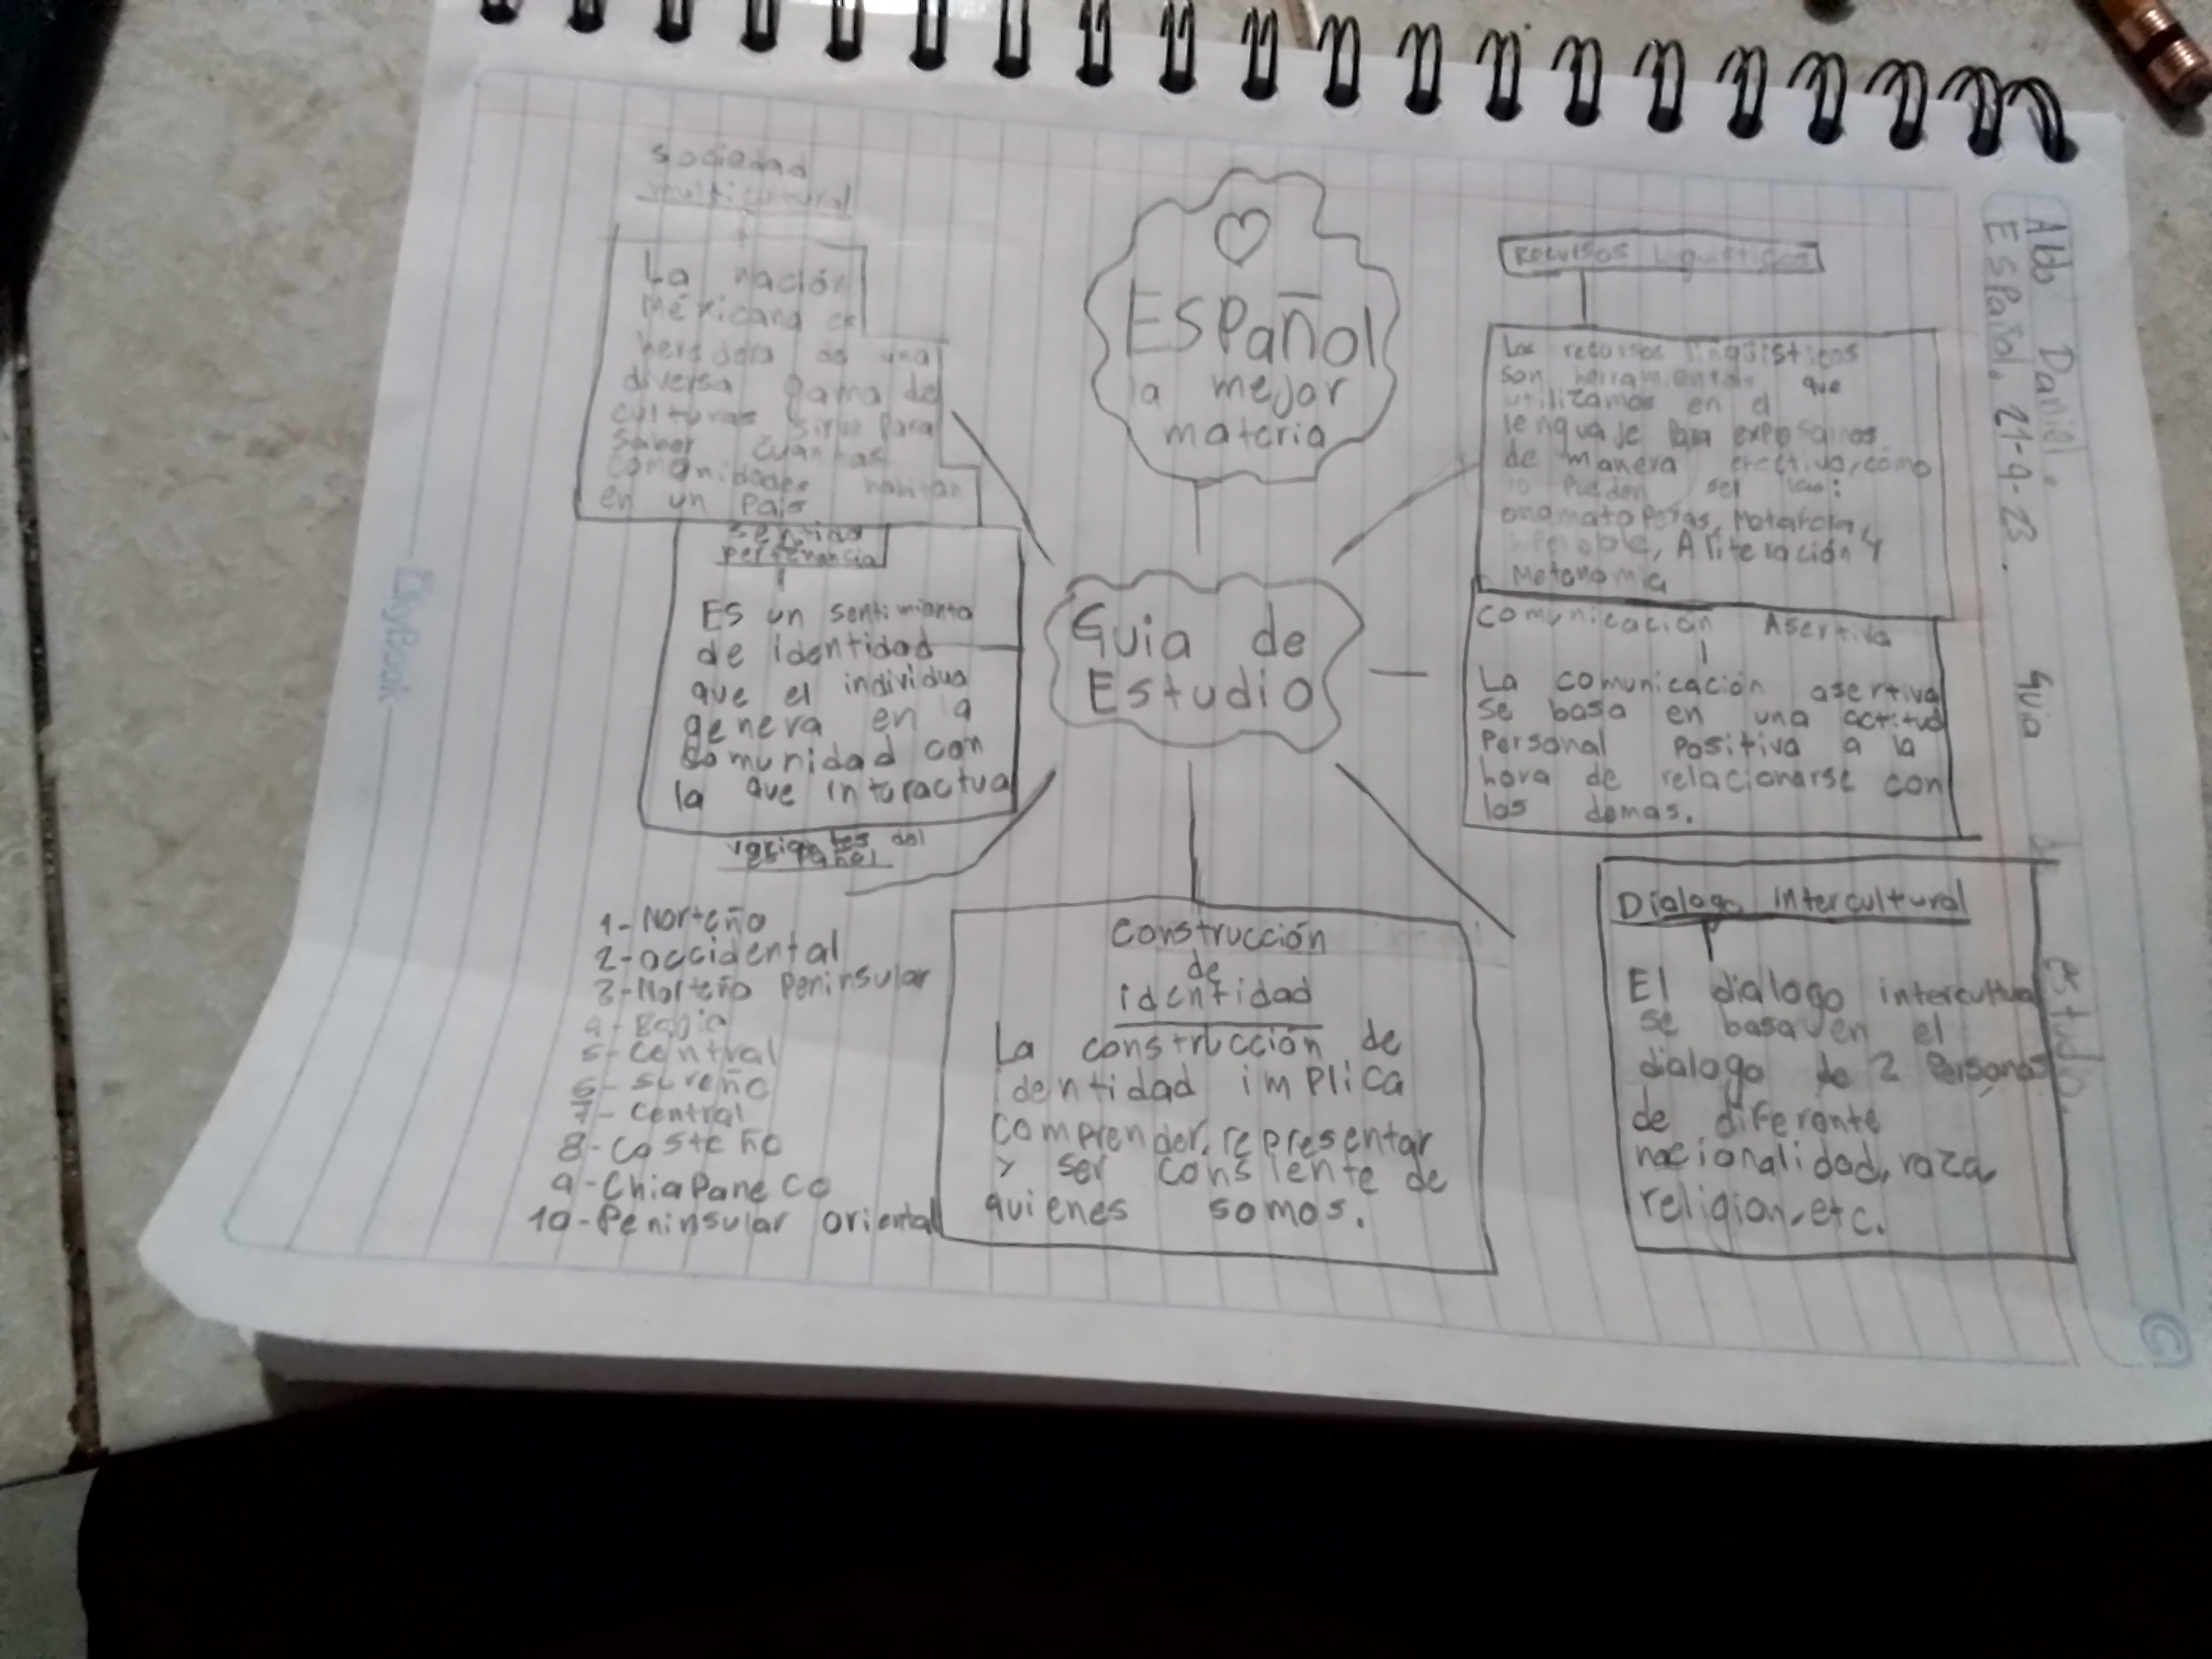 Español
la mejor
materia
Guia de
Estudio
sociedad
multicultural
La nación
Méxicana es
heredera de una
diversa gama de
culturas sirve para
saber cuantas
comonidades habitan
en un pais
sentido
pertenencia
Es un sentimiento
de identidad
que el individuo
genera en la
comunidad con
la que interactua
variantes del
español
1-Norteño
2-occidental
3-Norteño Peninsular
4-Bajio
5-Central
6-sureño
7-Central
8-Costeño
9-Chiapaneco
10-Peninsular oriental
Construcción
de
identidad
La construcción de
identidad implica
comprender, representar
y ser consiente de
quienes somos.
Recursos
Los recursos lingüisticos
son herramientas que
utilizamos en el
lenguaje para
de manera efectiva, como
lo pueden ser las:
Aliteración y
Metonomia
Comunicación Asertiva
La comunicación asertiva
se basa en una actitud
Personal Positiva a la
hora de relacionarse con
los demas.
Dialogo intercultural
El dialogo intercultural
se basa en el
dialogo de 2 Personas
de diferente
nacionalidad, raza,
religion, etc.
Abb Daniel.
Español. 21-9-23. Guia
estudio.
SkyBook